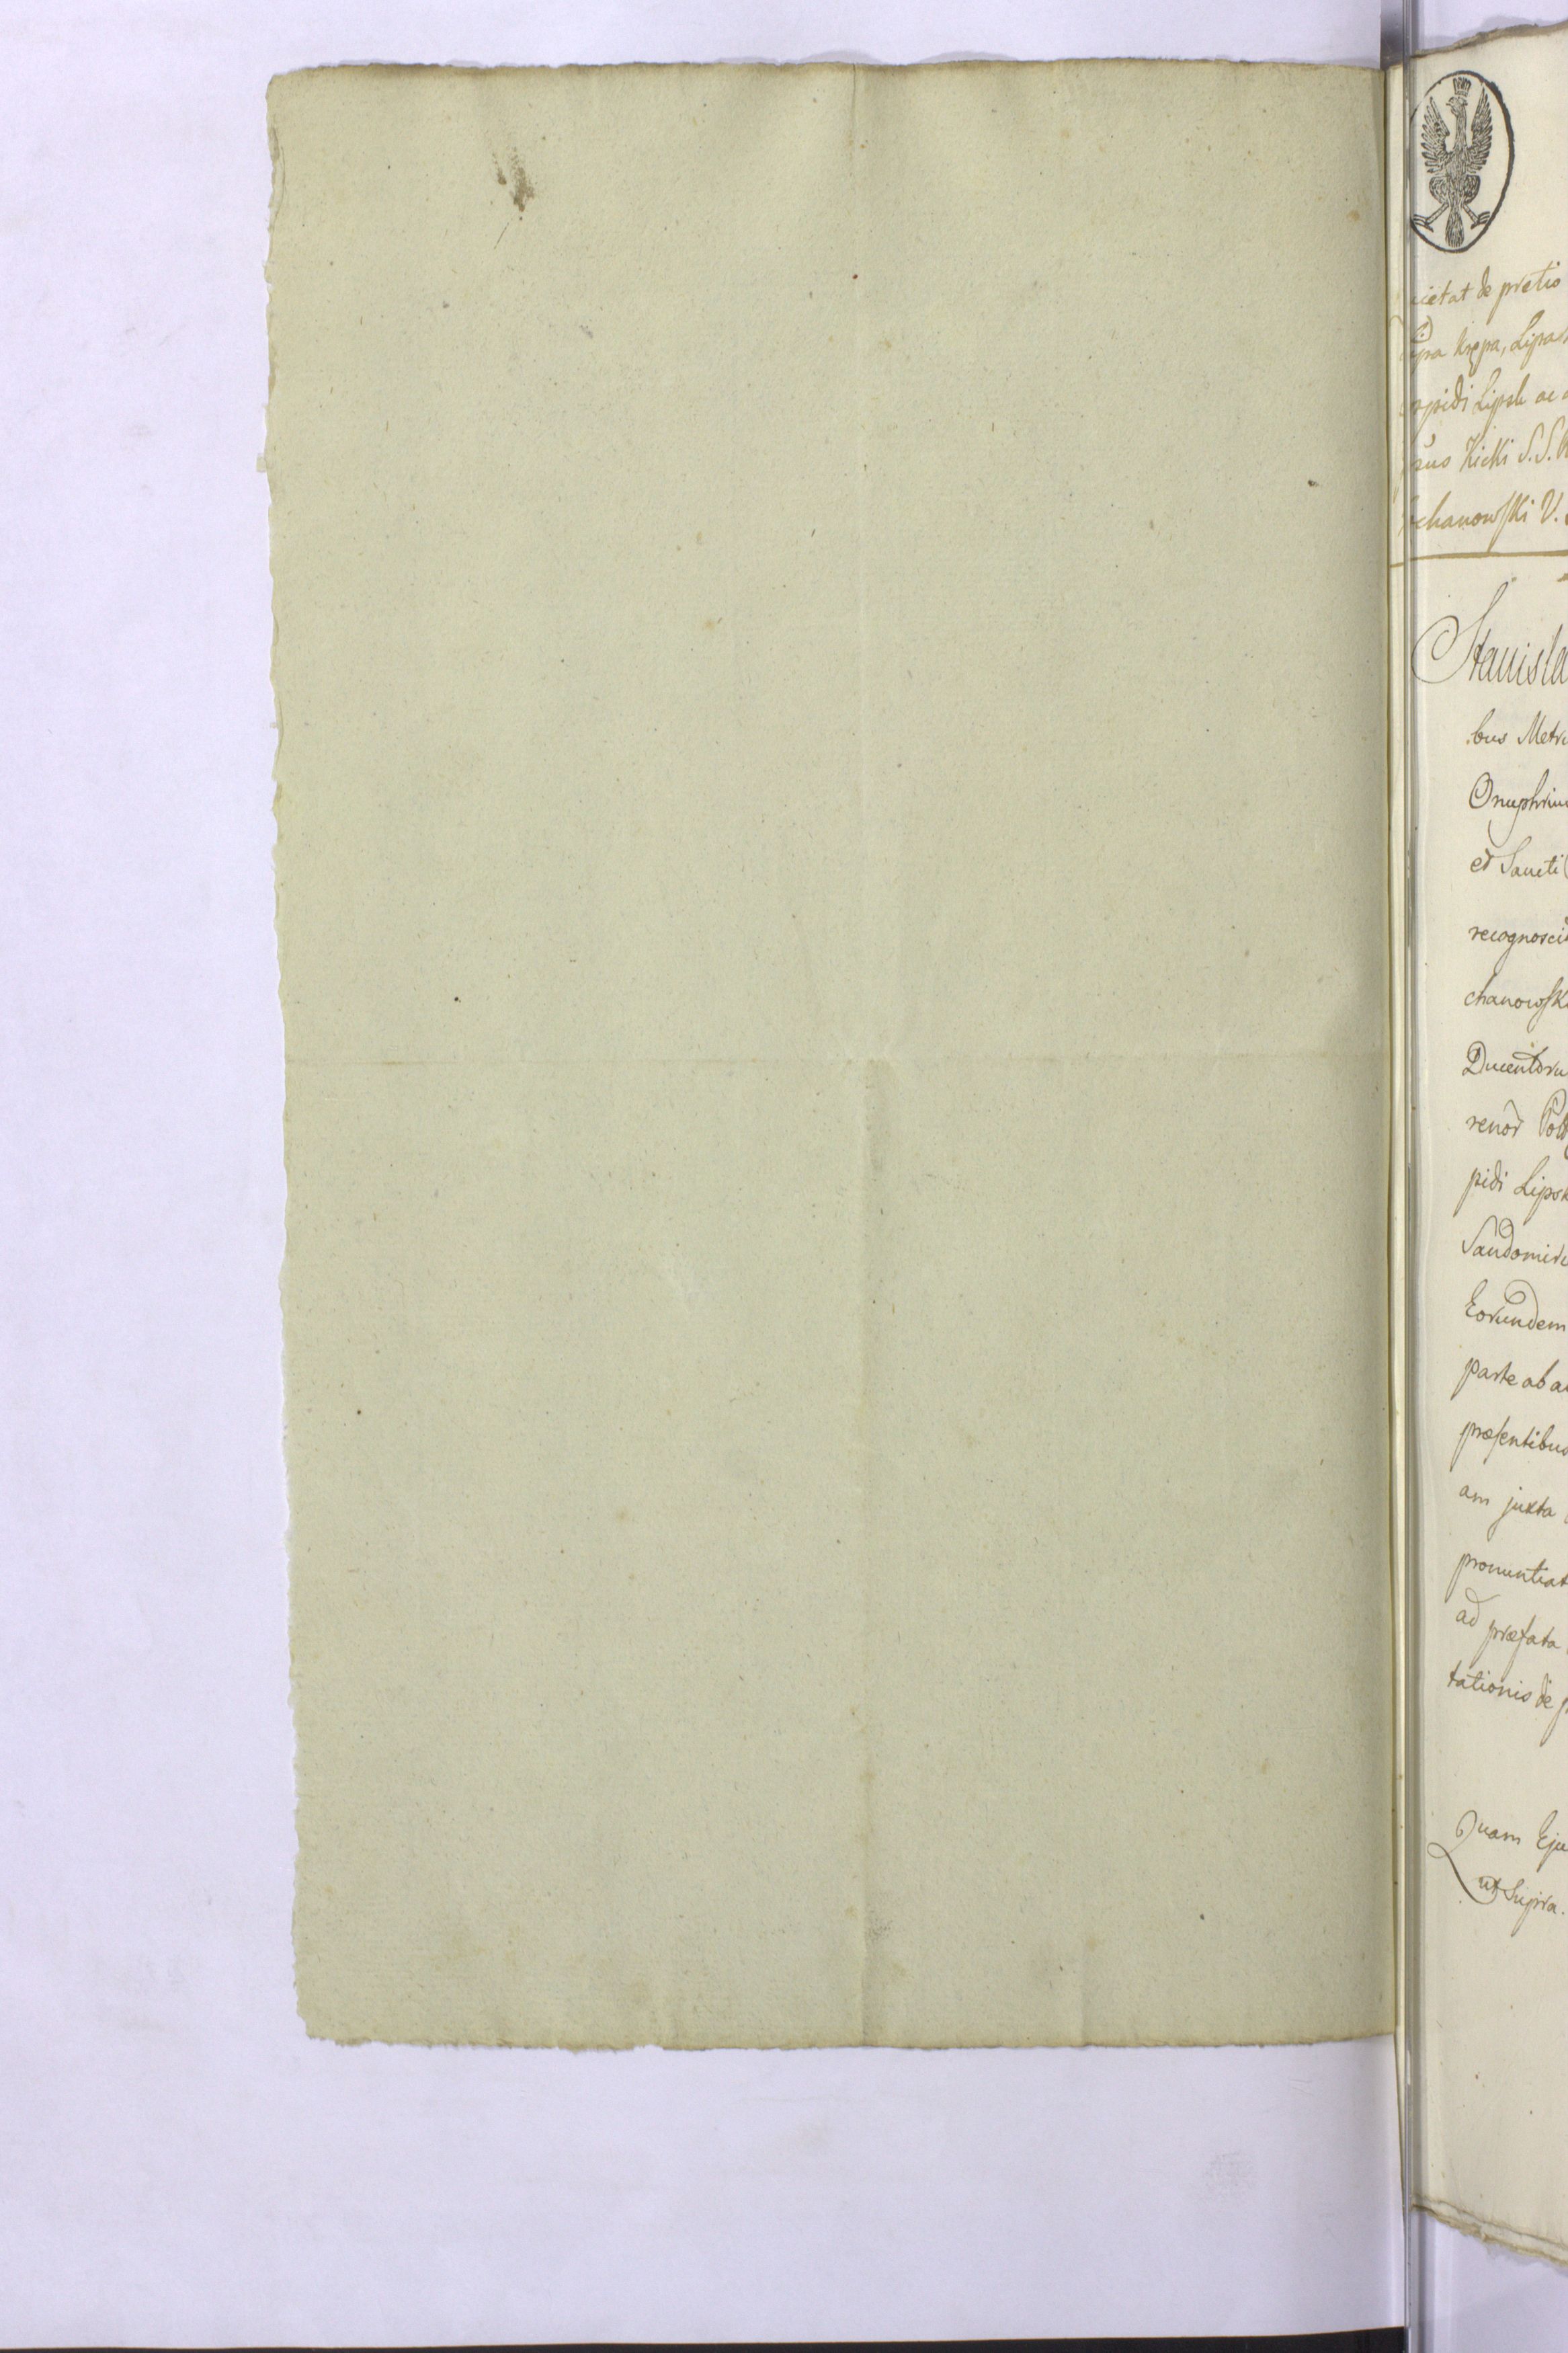 cietat de pretio
Krępa, Lipa
Lipsk ac
Kicki S. S.
chanowski V.
Stanisla
bus Metr
Onuphriu
et Sancti
recognosci
chanowsk
Ducentoru
renor̃ Pol
pidi Lipsk
Sandomir
Eorundem
parte ab a
præsentibus
am juxta
pronuntiat
ad præfata
tationis de
Quam Eju
ut Supra.